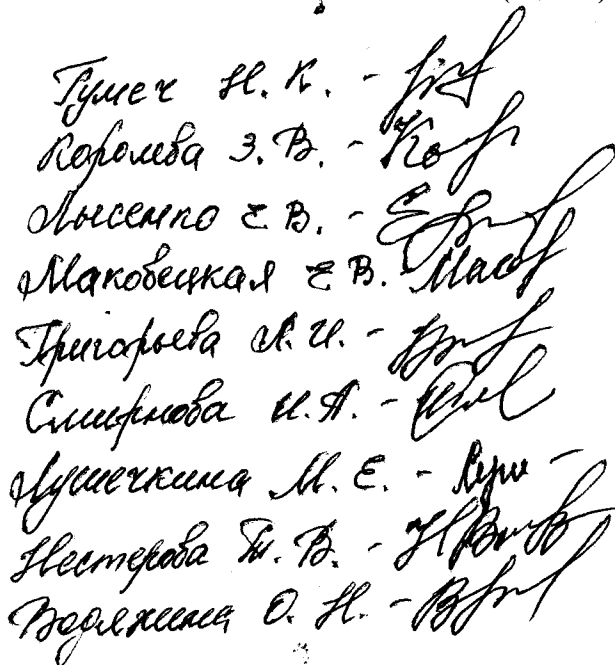 Гумеч Н. К. -
Королева З. В. -
Лысенко Е В. -
Маковецкая Е В. -
Григорьева Л. И. -
Смирнова И. А. -
Лушечкина М. Е. -
Нестерова Т. В. -
Водянина О. Н. -